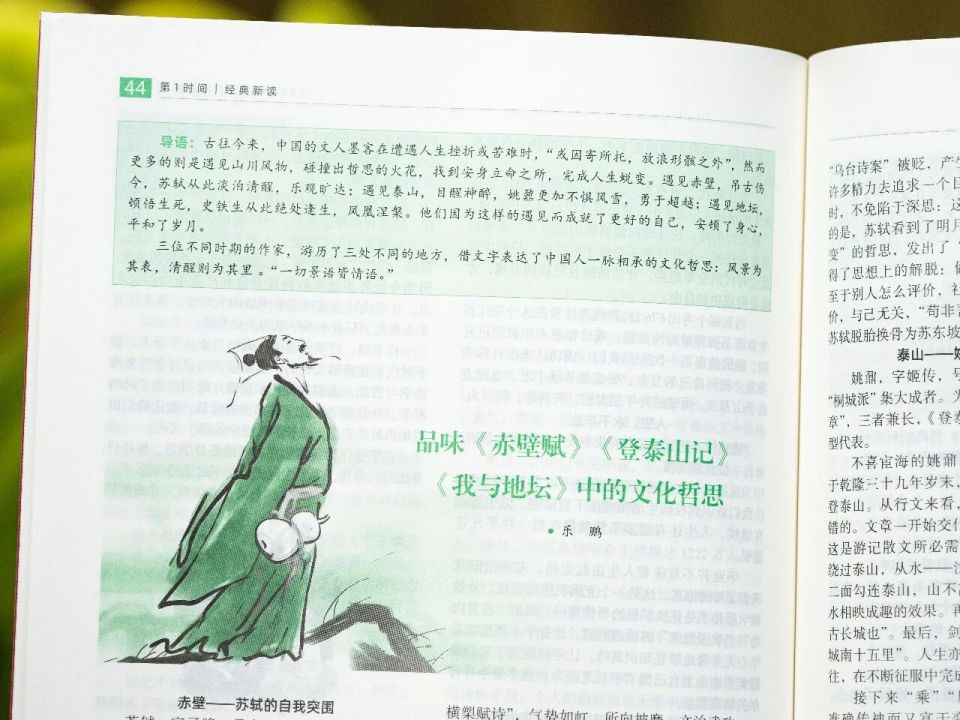 44 第1时间 | 经典新读
导语：古往今来，中国的文人墨客在遭遇人生挫折或苦难时，“或因寄所托，放浪形骸之外”，然而
更多的则是遇见山川风物，碰撞出哲思的火花，找到安身立命之所，完成人生蜕变。遇见赤壁，吊古伤
今，苏轼从此淡泊清醒，乐观旷达；遇见泰山，目醒神醉，姚鼐更加不惧风雪，勇于超越；遇见地坛，
顿悟生死，史铁生从此绝处逢生，凤凰涅槃。他们因为这样的遇见而成就了更好的自己，安顿了身心，
平和了岁月。
三位不同时期的作家，游历了三处不同的地方，借文字表达了中国人一脉相承的文化哲思：风景为
其表，清醒则为其里。“一切景语皆情语。”
品味《赤壁赋》《登泰山记》
《我与地坛》中的文化哲思
•乐 鹏
赤壁——苏轼的自我突围
横槊赋诗”，气势如虹，所向披靡，
“乌台诗案”被贬，产生
许多精力去追求一个目
时，不免陷于深思：这
的是，苏轼看到了明月
变”的哲思，发出了“
得了思想上的解脱：他
至于别人怎么评价，社
价，与己无关，“苟非吾
苏轼脱胎换骨为苏东坡
泰山——姚
姚鼐，字姬传，号
“桐城派”集大成者。为
章”，三者兼长，《登泰
型代表。
不喜宦海的姚鼐
于乾隆三十九年岁末，
登泰山。从行文来看，
错的。文章一开始交代
这是游记散文所必需
绕过泰山，从水——汶
二面勾连泰山，山不
水相映成趣的效果。再
古长城也”。最后，剑
城南十五里”。人生亦
往，在不断征服中完成
接下来“乘”“